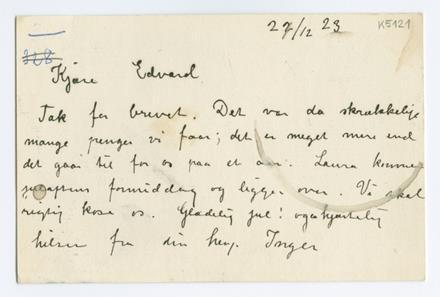 27/12 23
K5121
328
Kjære Edvard.
Tak for brevet. Det var da skrækkelige
mange penger vi faar; det er meget mere end
det gaar til for os paa et aar. Laura kommer
formiddag og ligger over. Vi skal
rigtig kose os. Gladelig jul! og hjertelig
hilsen fra din heng. Inger